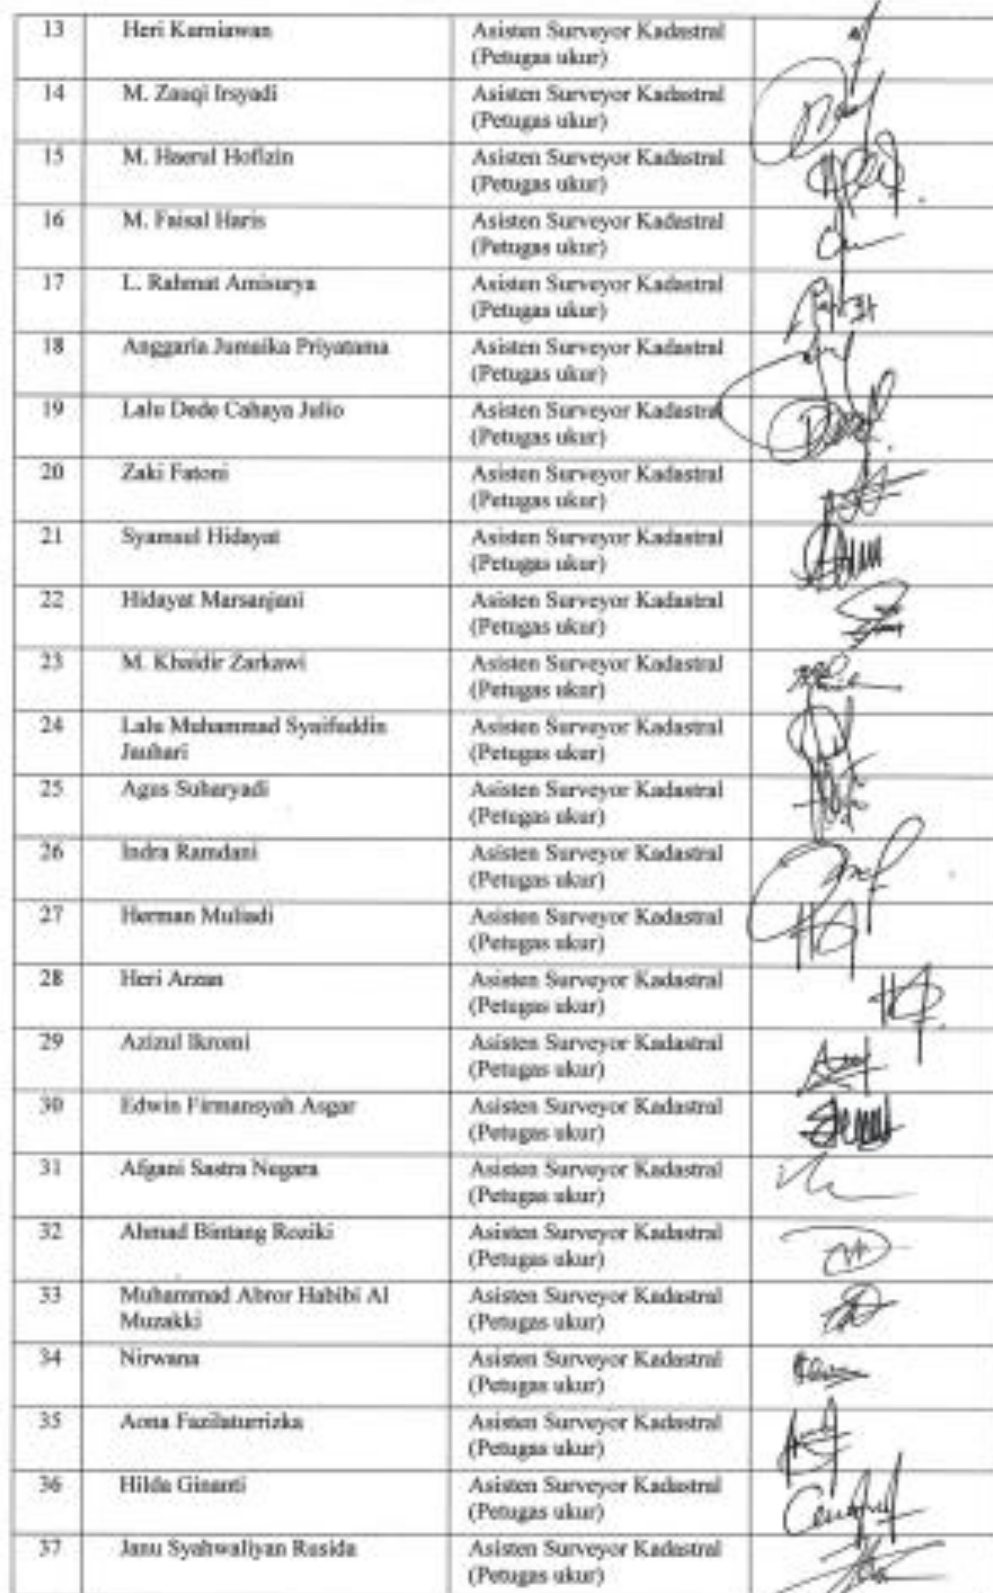 13 Heri Kurniawan Asisten Surveyor Kadastral
(Petugas ukur)
14 M. Zauqi Irsyadi Asisten Surveyor Kadastral
(Petugas ukur)
15 M. Haerul Hofizin Asisten Surveyor Kadastral
(Petugas ukur)
16 M. Faisal Haris Asisten Surveyor Kadastral
(Petugas ukur)
17 L. Rahmat Amisurya Asisten Surveyor Kadastral
(Petugas ukur)
18 Anggaria Jumaika Priyatama Asisten Surveyor Kadastral
(Petugas ukur)
19 Lalu Dede Cahaya Julio Asisten Surveyor Kadastral
(Petugas ukur)
20 Zaki Fatoni Asisten Surveyor Kadastral
(Petugas ukur)
21 Syamsul Hidayat Asisten Surveyor Kadastral
(Petugas ukur)
22 Hidayat Marsanjani Asisten Surveyor Kadastral
(Petugas ukur)
23 M. Khaidir Zarkawi Asisten Surveyor Kadastral
(Petugas ukur)
24 Lalu Muhammad Syaifuddin Asisten Surveyor Kadastral
Jauhari (Petugas ukur)
25 Agus Suharyadi Asisten Surveyor Kadastral
(Petugas ukur)
26 Indra Ramdani Asisten Surveyor Kadastral
(Petugas ukur)
27 Herman Muliadi Asisten Surveyor Kadastral
(Petugas ukur)
28 Heri Arzan Asisten Surveyor Kadastral
(Petugas ukur)
29 Azizul Ikromi Asisten Surveyor Kadastral
(Petugas ukur)
30 Edwin Firmansyah Asgar Asisten Surveyor Kadastral
(Petugas ukur)
31 Afgani Sastra Negara Asisten Surveyor Kadastral
(Petugas ukur)
32 Ahmad Bintang Roziki Asisten Surveyor Kadastral
(Petugas ukur)
33 Muhammad Abror Habibi Al Asisten Surveyor Kadastral
Muzakki (Petugas ukur)
34 Nirwana Asisten Surveyor Kadastral
(Petugas ukur)
35 Aona Fazilaturrizka Asisten Surveyor Kadastral
(Petugas ukur)
36 Hilda Ginanti Asisten Surveyor Kadastral
(Petugas ukur)
37 Janu Syahwaliyan Rusida Asisten Surveyor Kadastral
(Petugas ukur)